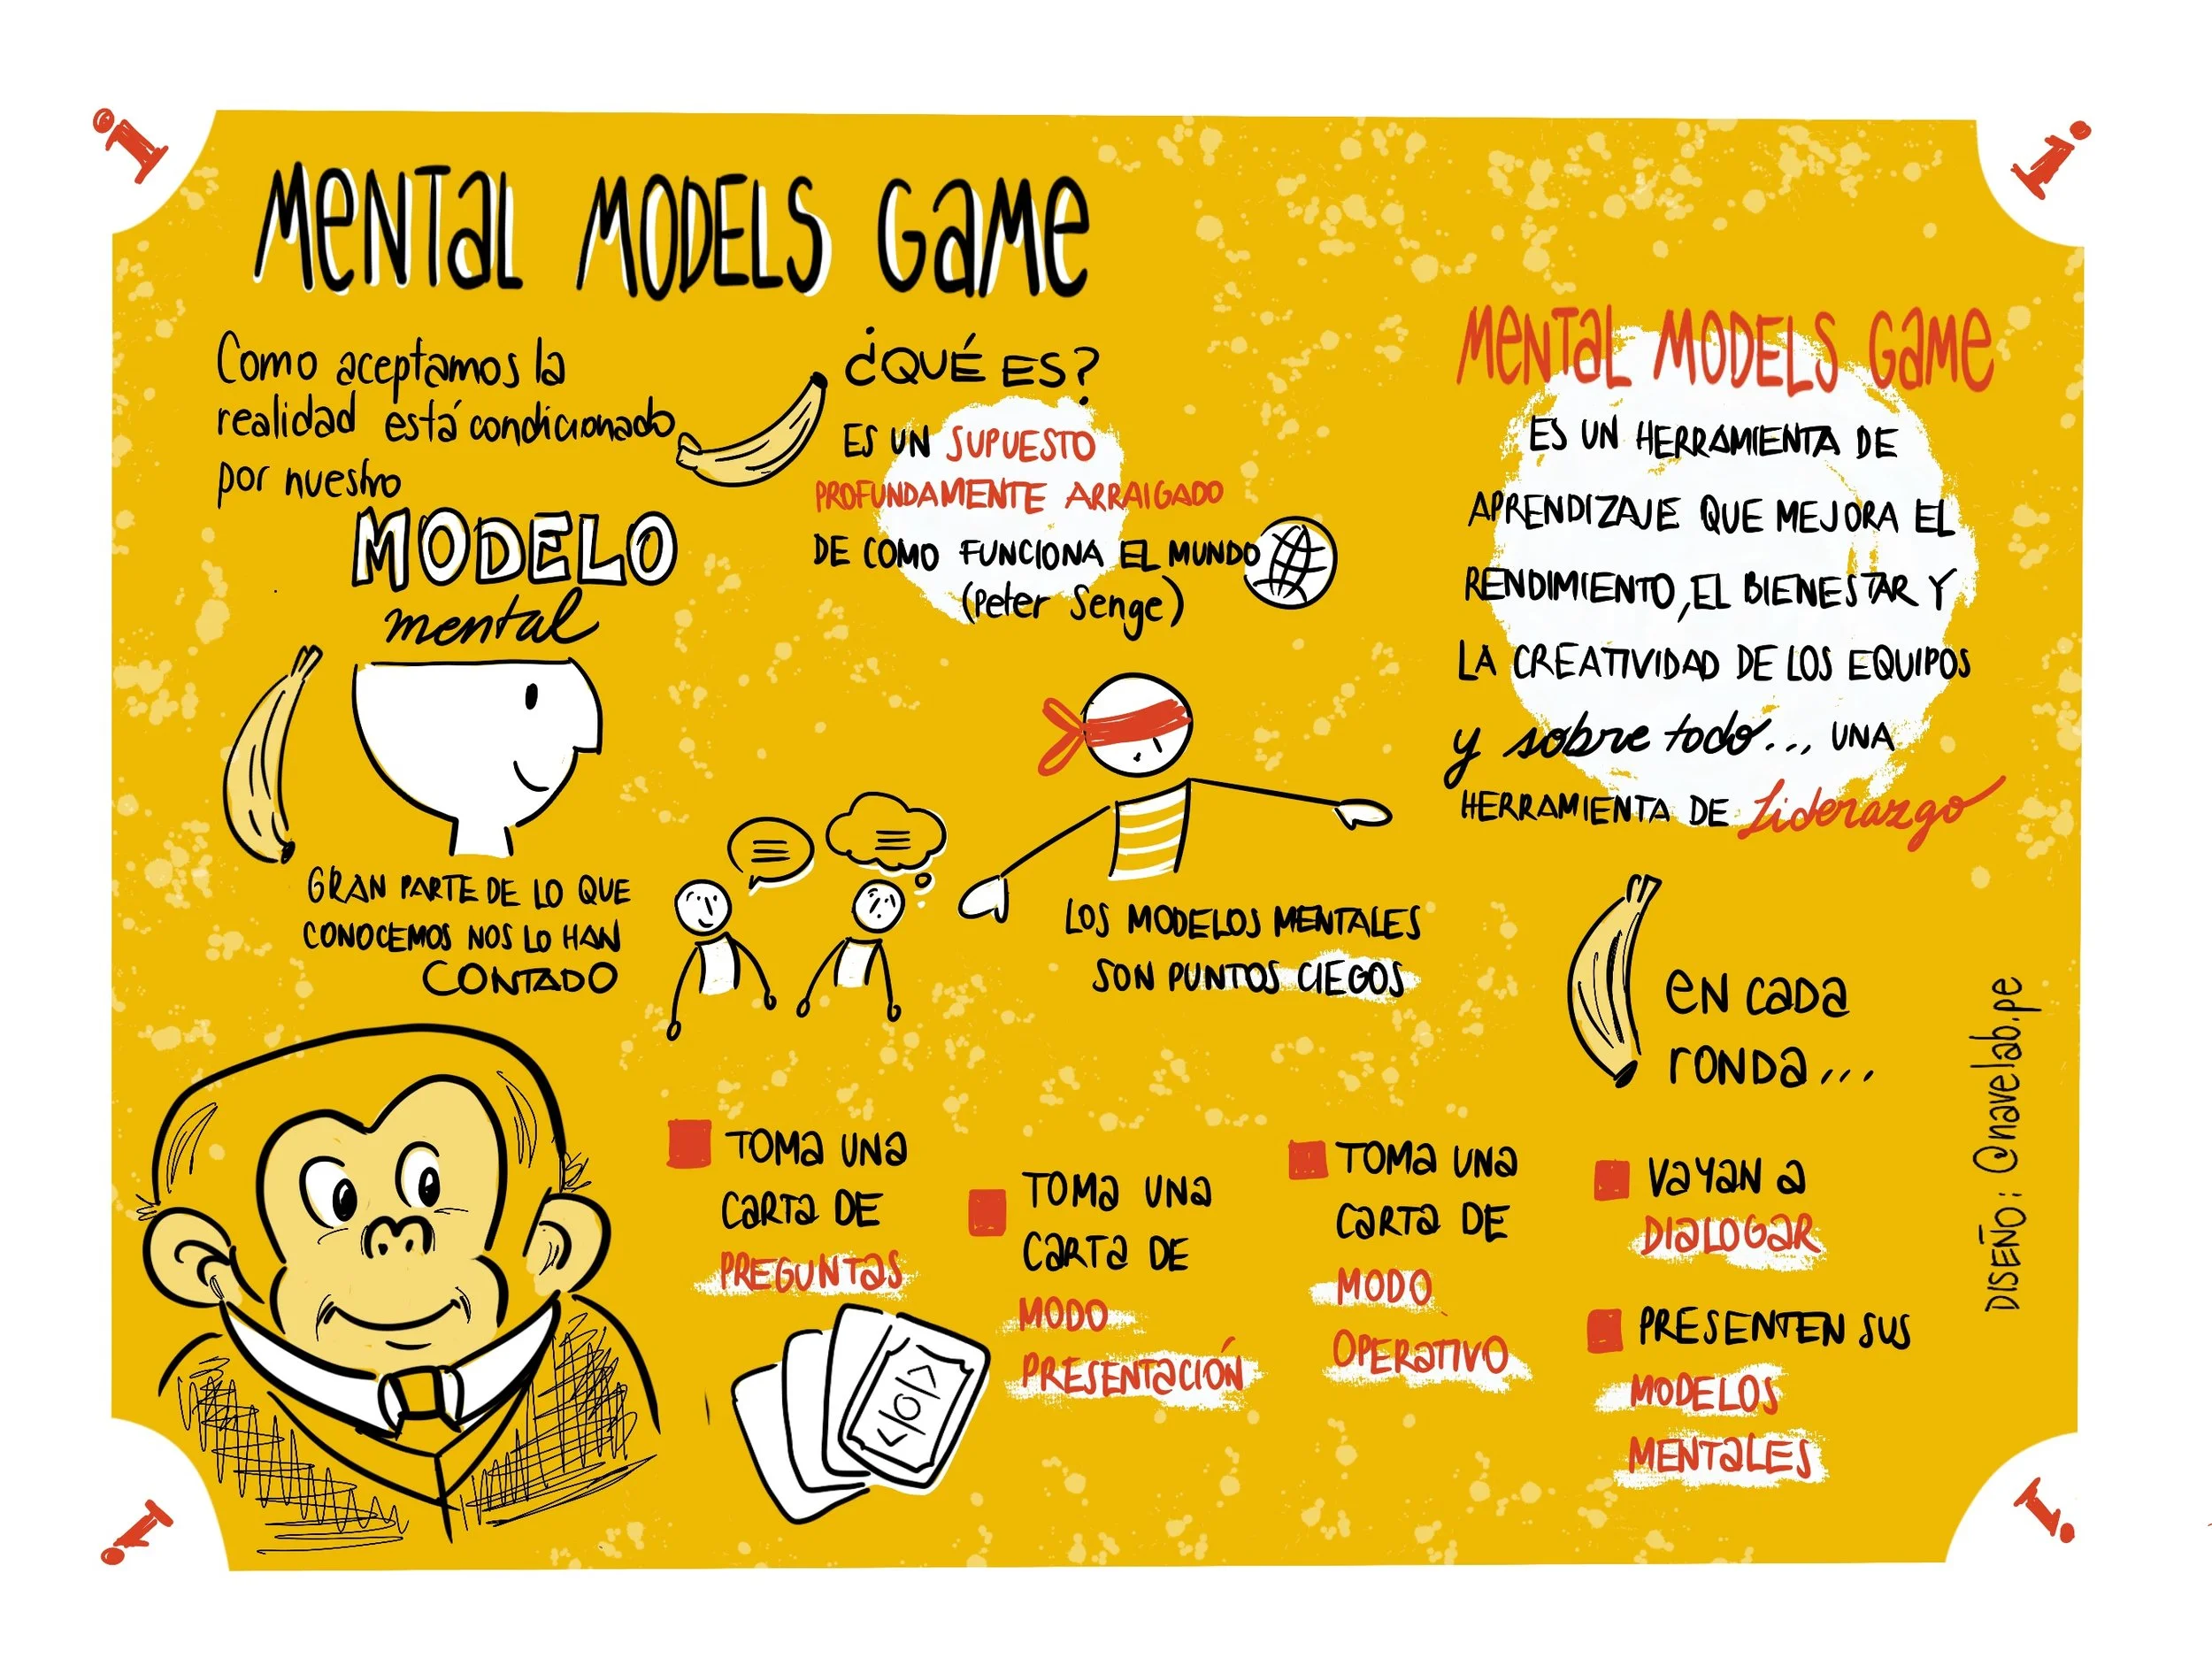 i
i
MENTAL MODELS GAME
Como aceptamos la
realidad está condicionado
por nuestro
MODELO
mental
GRAN PARTE DE LO QUE
CONOCEMOS NOS LO HAN
CONTADO
¿QUÉ ES?
ES UN SUPUESTO
PROFUNDAMENTE ARRAIGADO
DE COMO FUNCIONA EL MUNDO
(Peter Senge)
LOS MODELOS MENTALES
SON PUNTOS CIEGOS
MENTAL MODELS GAME
ES UN HERRAMIENTA DE
APRENDIZAJE QUE MEJORA EL
RENDIMIENTO, EL BIENESTAR Y
LA CREATIVIDAD DE LOS EQUIPOS
y sobre todo... UNA
HERRAMIENTA DE Liderazgo
EN CADA
RONDA...
TOMA UNA
CARTA DE
PREGUNTAS
TOMA UNA
CARTA DE
MODO
PRESENTACIÓN
TOMA UNA
CARTA DE
MODO
OPERATIVO
VAYAN A
DIALOGAR
PRESENTEN SUS
MODELOS
MENTALES
DISEÑO: @navelab.pe
i
i